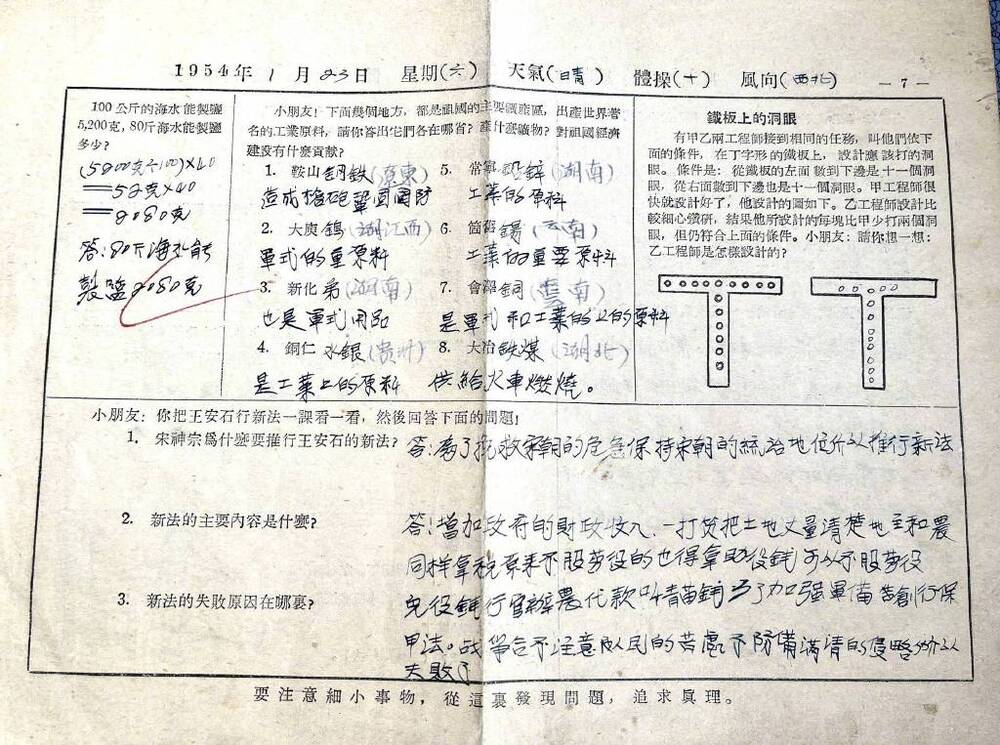 1954年1月23日 星期(六) 天氣(晴) 體操(十) 風向(西北) —7—
100公斤的海水能製鹽
5,200克，80斤海水能製鹽
多少？
(5200克÷100)×40
=52克×40
=2080克
答：80斤海水能
製鹽2080克
小朋友！下面幾個地方，都是祖國的主要礦產區，出產世界著
名的工業原料，請你答出它們各在哪省？產什麼礦物？對祖國經濟
建設有什麼貢獻？
1. 鞍山 鋼鉄(東)
造成槍砲鞏固國防
2. 大庾 鎢(江西)
軍式的重原料
3. 新化 (湖南)
也是軍式用品
4. 銅仁 水銀(贵州)
是工業上的原料
5. 常寧 鋅(湖南)
工業的原料
6. 箇舊 錫(云南)
工業的重要原料
7. 會澤 銅(雲南)
是軍式和工業的上的原料
8. 大冶 鉄煤(湖北)
供給火車燃燒。
鐵板上的洞眼
有甲乙兩工程師接到相同的任務，叫他們依下
面的條件，在丁字形的鐵板上，設計應該打的洞
眼。條件是：從鐵板的左面數到下邊是十一個洞
眼，從右面數到下邊也是十一個洞眼。甲工程師很
快就設計好了，他設計的圖如下。乙工程師設計比
較細心鑽研，結果他所設計的每塊比甲少打兩個洞
眼，但仍符合上面的條件。小朋友：請你想一想：
乙工程師是怎樣設計的？
小朋友：你把王安石行新法一課看一看，然後回答下面的問題！
1. 宋神宗爲什麼要推行王安石的新法？ 答：為了挽救宋朝的危急保持宋朝的統治地位所以推行新法
2. 新法的主要內容是什麼？ 答：增加政府的財政收入、一打贷把土地丈量清楚地主和農
同样拿税原来不服劳役的也得拿助役钱可以不服劳役
3. 新法的失敗原因在哪裏？ 免役錢行官辦農代款叫青苗錢 了加强軍備 創行保
甲法。 不注意人民的苦處不防備滿清的侵略所以
失敗了
要注意細小事物，從這裏發現問題，追求眞理。